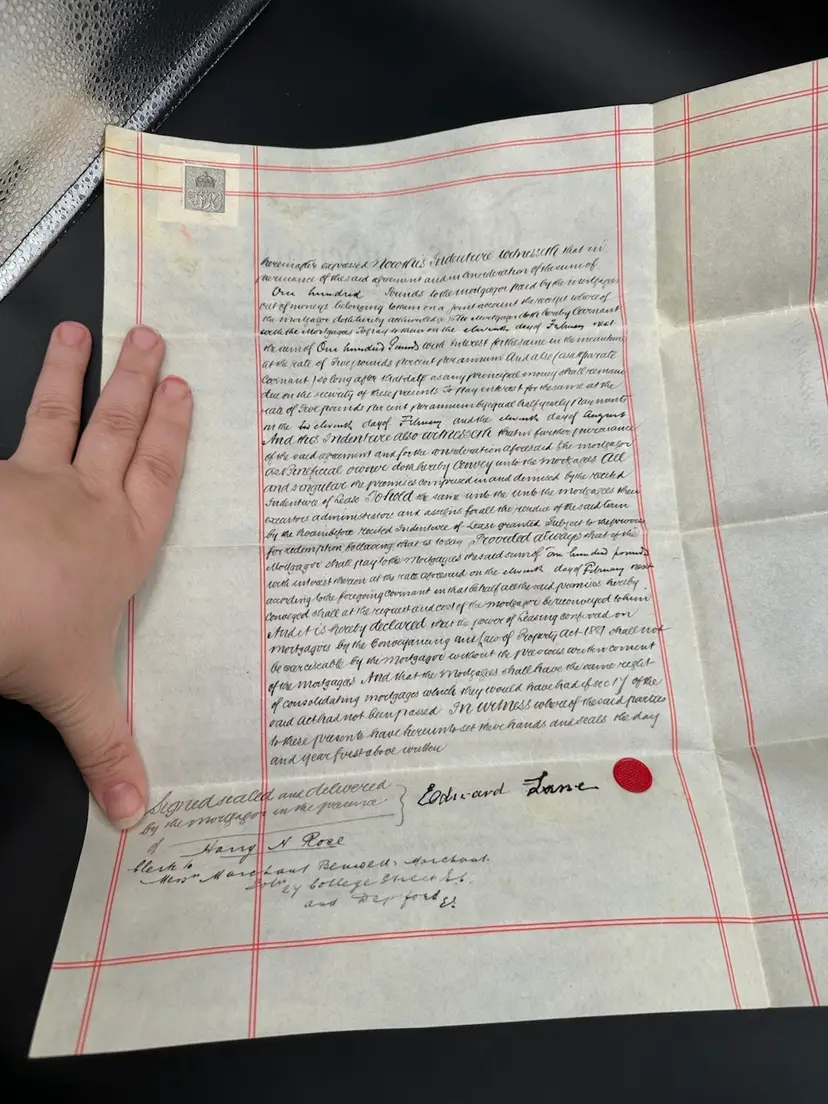 hereinafter expressed Now this Indenture witnesseth that in
pursuance of the said agreement and in consideration of the sum of
One hundred Pounds to the Mortgagor paid by the Mortgagees
out of moneys belonging to them on a joint account the receipt whereof
the Mortgagor doth hereby acknowledge The Mortgagor doth hereby Covenant
with the Mortgagees To pay to them on the eleventh day of February next
the sum of One hundred Pounds with interest for the same in the meantime
at the rate of Five pounds percent per annum And also (as a separate
Covenant) so long after that date as any principal money shall remain
due on the security of these presents To pay interest for the same at the
rate of Five pounds per cent per annum by equal half yearly payments
on the eleventh day of February and the eleventh day of August
And this Indenture also witnesseth that in further pursuance
of the said agreement and for the consideration aforesaid the Mortgagor
as Beneficial owner doth hereby Convey unto the Mortgagees All
and singular the premises comprised in and demised by the recited
Indenture of Lease To hold the same unto the unto the Mortgagees their
executors administrators and assigns for all the residue of the said term
by the hereinbefore recited Indenture of Lease granted Subject to the proviso
for redemption following that is to say Provided always that if the
Mortgagor shall pay to the Mortgagees the said sum of One hundred pounds
with interest thereon at the rate aforesaid on the eleventh day of February next
according to the foregoing covenant in that behalf all the said premises hereby
conveyed shall at the request and cost of the Mortgagor be reconveyed to him
And it is hereby declared that the power of leasing conferred on
mortgagors by the Conveyancing and Law of Property Act 1881 shall not
be exercisable by the Mortgagor without the previous written consent
of the Mortgagees And that the Mortgagees shall have the same right
of consolidating mortgages which they would have had if sec 17 of the
said Act had not been passed In witness whereof the said parties
to these presents have hereunto set their hands and seals the day
and year first above written
Signed sealed and delivered
by the Mortgagor in the presence
of
Edward Lane
Harry H Rose
Clerk to
Messrs Marchant Benwell Marchant
Solrs 27 College Street
and Deptford